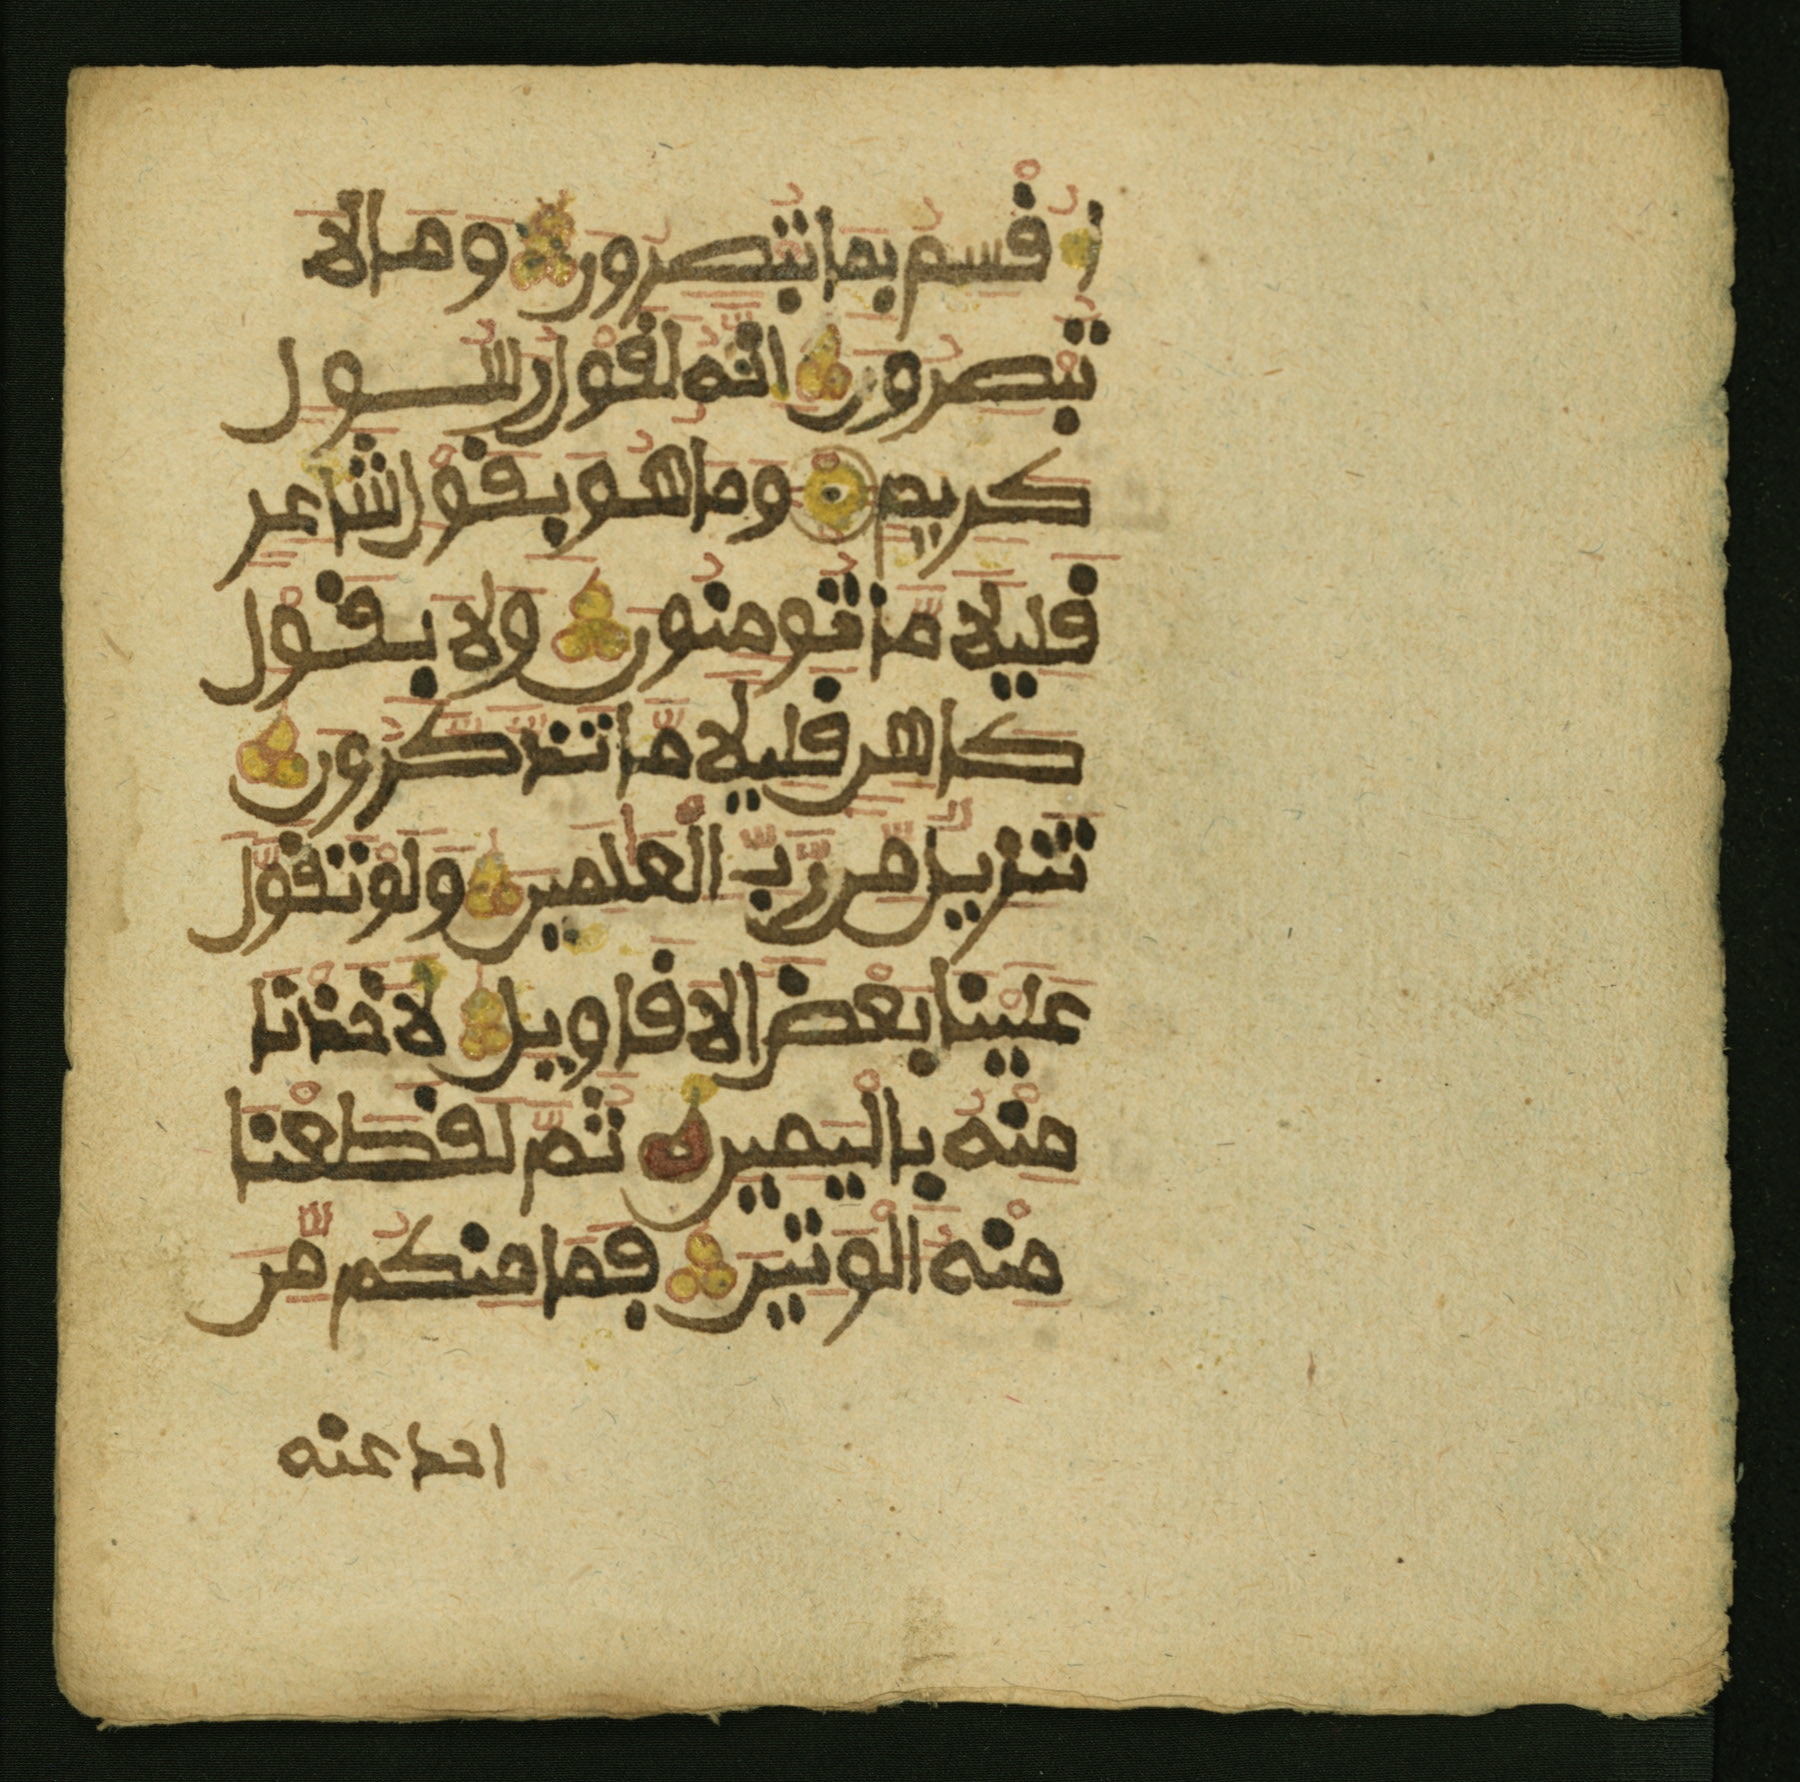 أُقْسِمُ بِمَا تُبْصِرُونَ وَمَا لَا
تُبْصِرُونَ إِنَّهُ لَقَوْلُ رَسُولٍ
كَرِيمٍ وَمَا هُوَ بِقَوْلِ شَاعِرٍ
قَلِيلًا مَّا تُومِنُونَ وَلَا بِقَوْلِ
كَاهِنٍ قَلِيلًا مَّا تَذَّكَّرُونَ
تَنزِيلٌ مِّن رَّبِّ الْعَٰلَمِينَ وَلَوْ تَقَوَّلَ
عَلَيْنَا بَعْضَ الْأَقَاوِيلِ لَأَخَذْنَا
مِنْهُ بِالْيَمِينِ ثُمَّ لَقَطَعْنَا
مِنْهُ الْوَتِينَ فَمَا مِنكُم مِّنْ
احد عنه